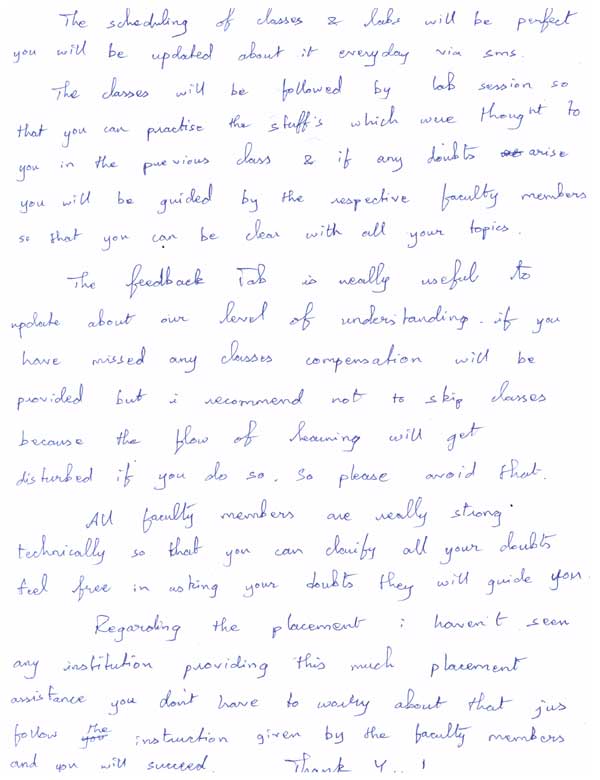 The scheduling of classes & labs will be perfect
you will be updated about it everyday via sms.
The classes will be followed by lab session so
that you can practise the stuff's which were thought to
you in the previous class & if any doubts arise
you will be guided by the respective faculty members
so that you can be clear with all your topics.
The feedback Tab is really useful to
update about our level of understanding. if you
have missed any classes compensation will be
provided but i recommend not to skip classes
because the flow of learning will get
disturbed if you do so. So please avoid that.
All faculty members are really strong
technically so that you can clarify all your doubts
feel free in asking your doubts they will guide you.
Regarding the placement i haven't seen
any institution providing this much placement
assistance you don't have to worry about that jus
follow the instruction given by the faculty members
and you will succeed. Thank Y..!